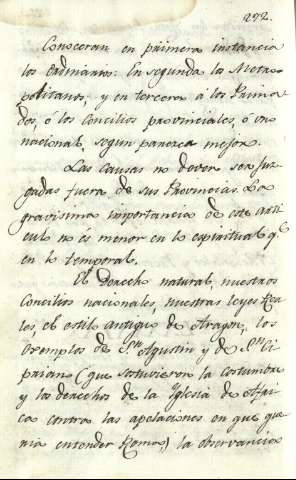 272.
Conoceran en primera instancia
los ordinarios: En segunda los Metro-
politanos, y en tercera á los Prima-
dos, ó los Concilios provinciales, ó uno
nacional, segun parezca mejor.
Las causas no deven ser juz-
gadas fuera de sus Provincias. La
gravisima importancia de este arti-
culo no és menor en lo espiritual q.e
en lo temporal.
El derecho natural, nuestros
Concilios nacionales, nuestras leyes Rea-
les, el estilo antiguo de Aragon, los
exemplos de S.n Agustin y de S.n Ci-
priano (que sotuvieron la costumbre
y los derechos de la Iglesia de Afri-
ca contra las apelaciones en que que-
ria entender Roma) la observancia